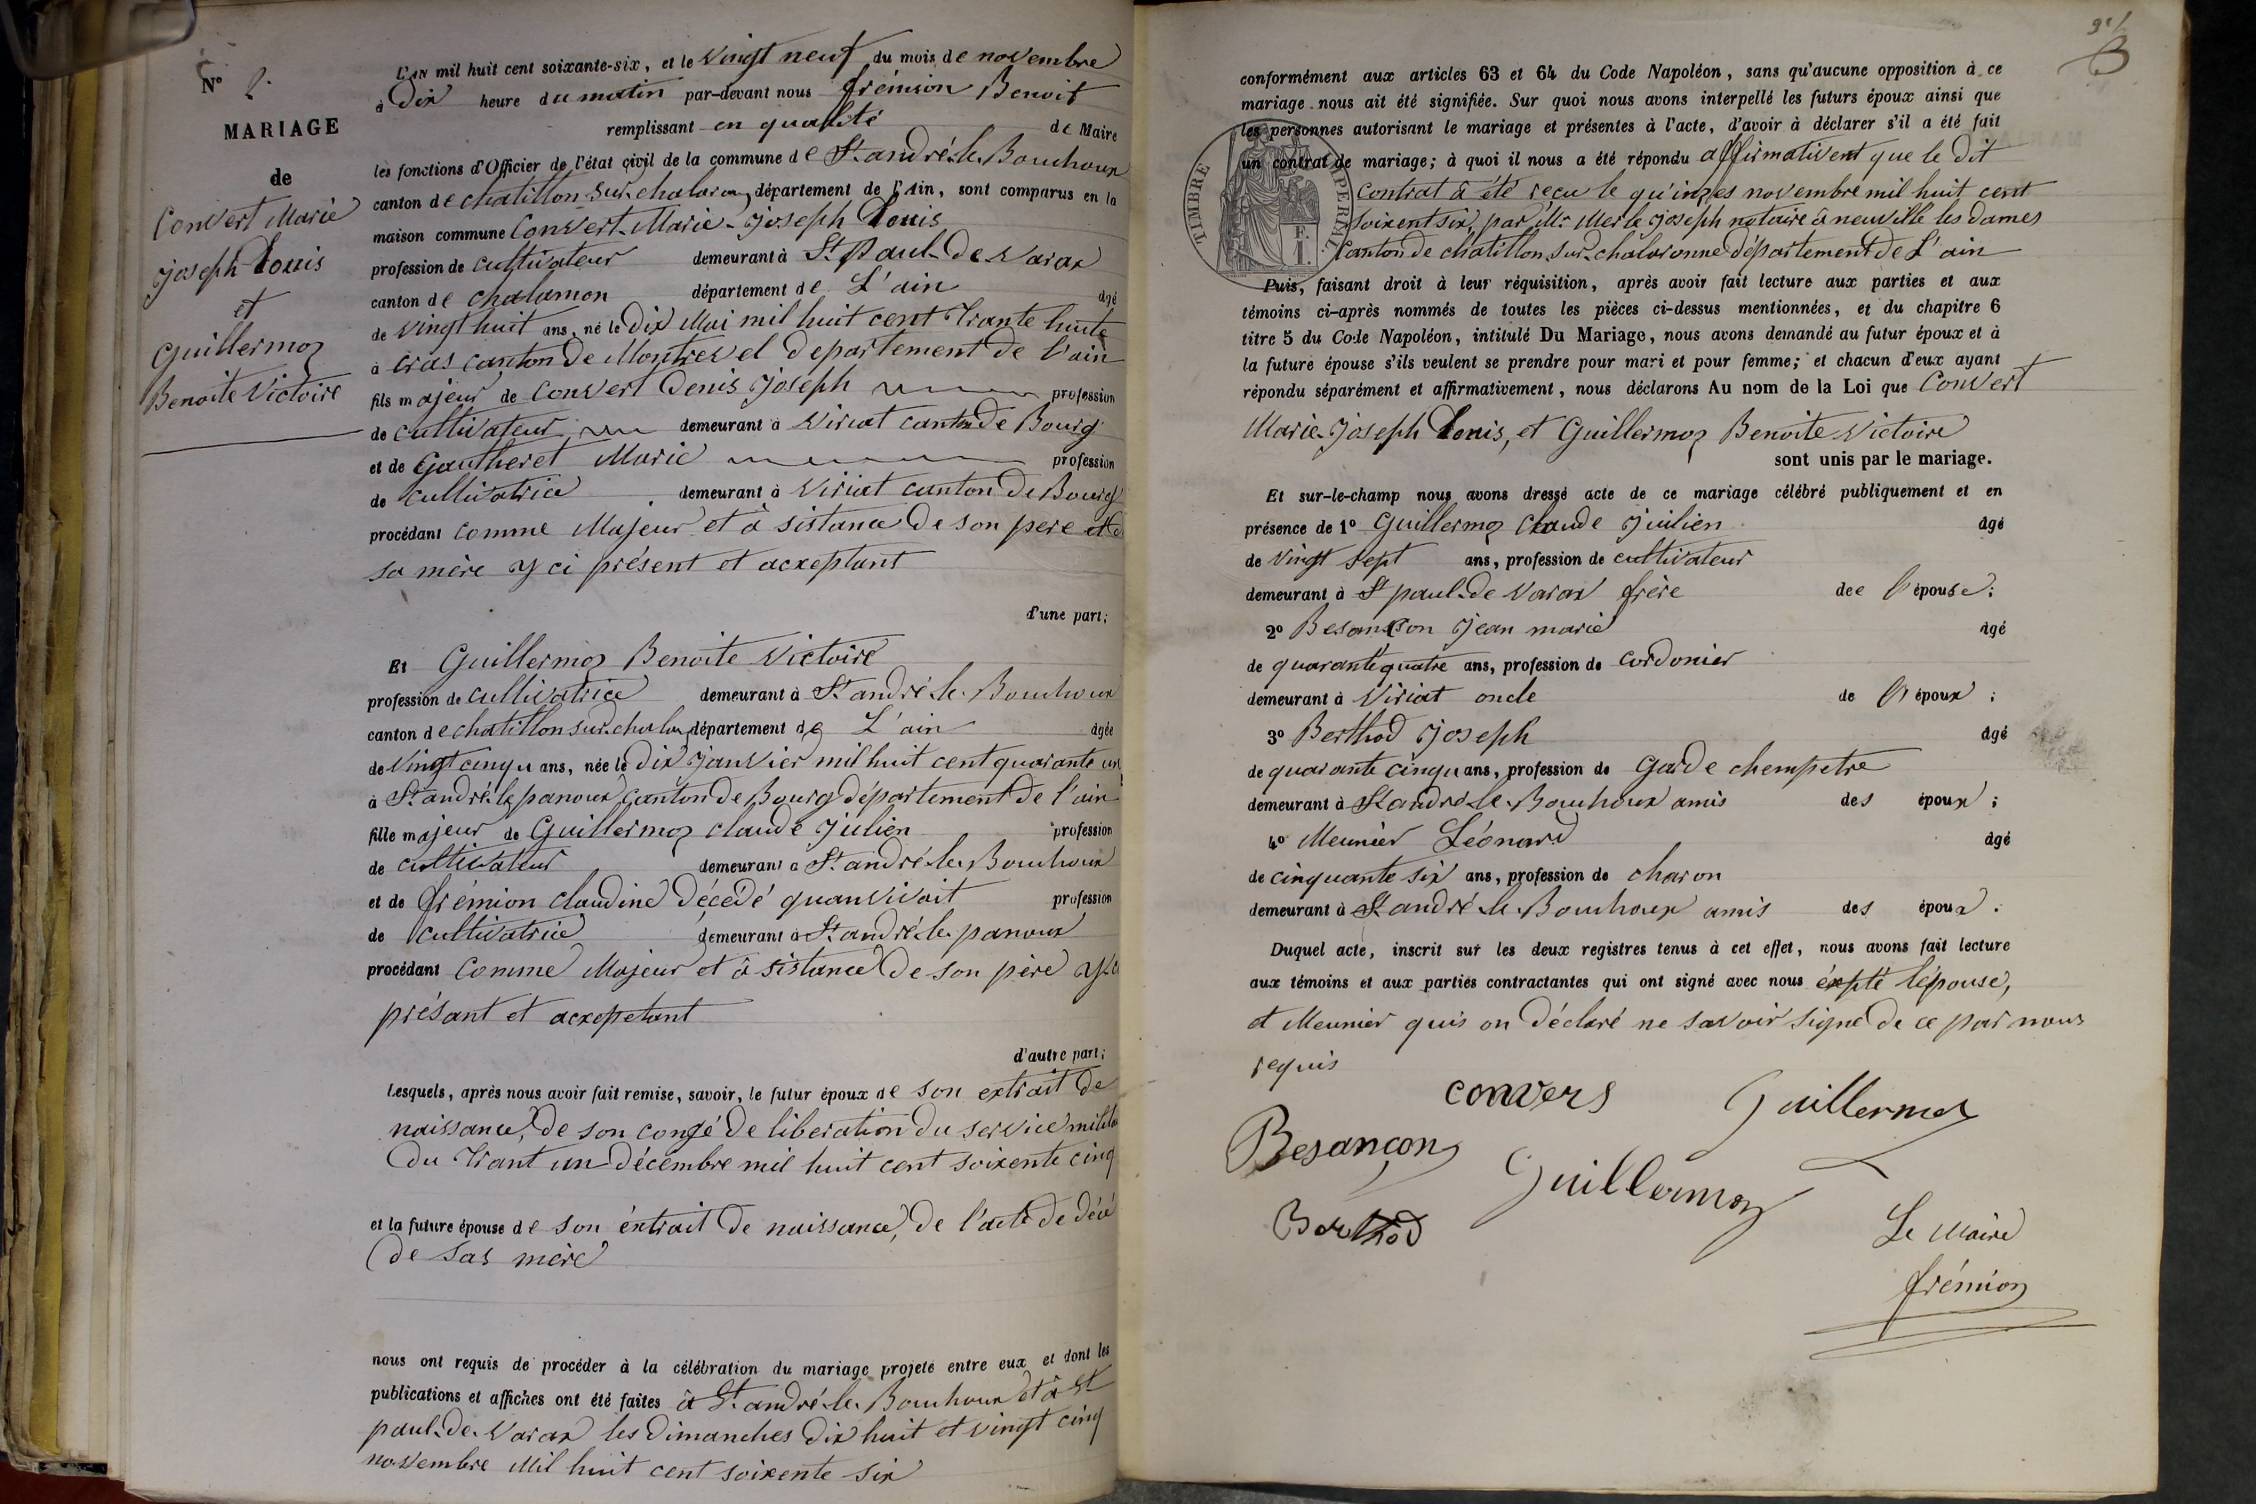 N° 2.
MARIAGE
de
Convert Marie
joseph Louis
et
Guillermoz
Benoite Victoire
L'AN mil huit cent soixante-six, et le vingt neuf du mois de novembre
à Dix heure du matin par-devant nous frémion Benoit
remplissant en qualité de Maire
les fonctions d'Officier de l'état civil de la commune de St andré-le-Bouchoux
canton de chatillon-sur-chalaron, département de l'Ain, sont comparus en la
maison commune Convert Marie-joseph Louis
profession de cultivateur demeurant à St paul-De-varax
canton de chalamon département de L'ain âgé
de vingt huit ans, né le Dix Mai mil huit cent Trante huite
à cras canton De Montrevel Departement De l'ain
fils majeur de Convert Denis joseph profession
de cultivateur demeurant à Viriat canton De Bourg
et de Gautheret Marie profession
de cultivatrice demeurant à Viriat canton De Bourg
procédant comme Majeur et à sistance De son pere et de
sa mère y ci présent et acxeptant
d'une part;
Et Guillermoz Benoite Victoire
profession de cultivatrice demeurant à St andré-le-Bouchoux
canton de chatillon sur chalar, département de L'ain âgée
de Vingt cinqu ans, née le Dix janvier mil huit cent quarante un
à St andré-le panoux canton de Bourg département de l'ain
fille majeur de Guillermoz claude julien profession
de cultivateur demeurant à St andré-le-Bouchoux
et de frémion claudine Décédé quan vivait profession
de cultivatrice demeurant à St andré-le-panoux
procédant comme Majeur et à sistance De son père y ci
présant et acxepetant
d'autre part;
Lesquels, après nous avoir fait remise, savoir, le futur époux de son extrait de
naissance, De son congé De liberation Du service milita
Du Trant un Décembre mil huit cent soixente cinq
et la future épouse de son éxtrait De naissance, De l'acte De décé
De sas mère
nous ont requis de procéder à la célébration du mariage projeté entre eux et dont les
publications et affiches ont été faites à St andré-le-Bouchoux et à St
paul-De-varax les Dimanches Dix huit et vingt cinq
novembre Mil huit cent soixente six
91
conformément aux articles 63 et 64 du Code Napoléon, sans qu'aucune opposition à ce
mariage nous ait été signifiée. Sur quoi nous avons interpellé les futurs époux ainsi que
les personnes autorisant le mariage et présentes à l'acte, d'avoir à déclarer s'il a été fait
un contrat de mariage; à quoi il nous a été répondu affirmativent que le dit
contrat à été reçu le qu'inzes novembre mil huit cent
soixent six, par Me Merle joseph notaire à neuville les Dames
Canton de chatillon-sur-chalaronne département De L'ain
TIMBRE IMPERIAL
Puis, faisant droit à leur réquisition, après avoir fait lecture aux parties et aux
témoins ci-après nommés de toutes les pièces ci-dessus mentionnées, et du chapitre 6
titre 5 du Code Napoléon, intitulé Du Mariage, nous avons demandé au futur époux et à
la future épouse s'ils veulent se prendre pour mari et pour femme; et chacun d'eux ayant
répondu séparément et affirmativement, nous déclarons Au nom de la Loi que Convert
Marie-joseph Louis, et Guillermoz Benoite Victoire
sont unis par le mariage.
Et sur-le-champ nous avons dressé acte de ce mariage célébré publiquement et en
présence de 1° Guillermoz Claude juilien âgé
de vingt sept ans, profession de cultivateur
demeurant à St paul-De varax frère dee l'épouse;
2° Besancson jean marie âgé
de quarante quatre ans, profession de cordonier
demeurant à Viriat oncle de l'époux;
3° Berthod joseph âgé
de quarante cinqu ans, profession de garde chempetre
demeurant à St andré-le-Bouchoux amis des époux;
4° Meunier Léonard âgé
de cinquante six ans, profession de charon
demeurant à St andré-le-Bouchoux amis des époux.
Duquel acte, inscrit sur les deux registres tenus à cet effet, nous avons fait lecture
aux témoins et aux parties contractantes qui ont signé avec nous éxpté l'épouse,
et Meunier quis on Déclaré ne savoir signé De ce par nous
requis
convers
Guillermoz
Besançon
Guillermoz
Berthod
Le Maire
frémion